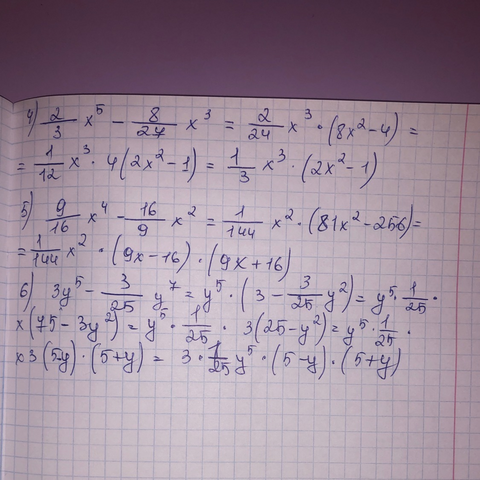 4) 2/3 x⁵ - 8/27 x³ = 2/24 x³ · (8x² - 4) =
= 1/12 x³ · 4(2x² - 1) = 1/3 x³ · (2x² - 1)
5) 9/16 x⁴ - 16/9 x² = 1/144 x² · (81x² - 256) =
= 1/144 x² · (9x - 16) · (9x + 16)
6) 3y⁵ - 3/25 y⁷ = y⁵ · (3 - 3/25 y²) = y⁵ · 1/25 ·
x (75 - 3y²) = y⁵ · 1/25 · 3(25 - y²) = y⁵ · 1/25 ·
x 3(5-y) · (5+y) = 3 · 1/25 y⁵ · (5-y) · (5+y)